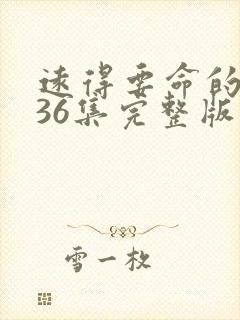 远得要命的
36集完整版
雪一枚